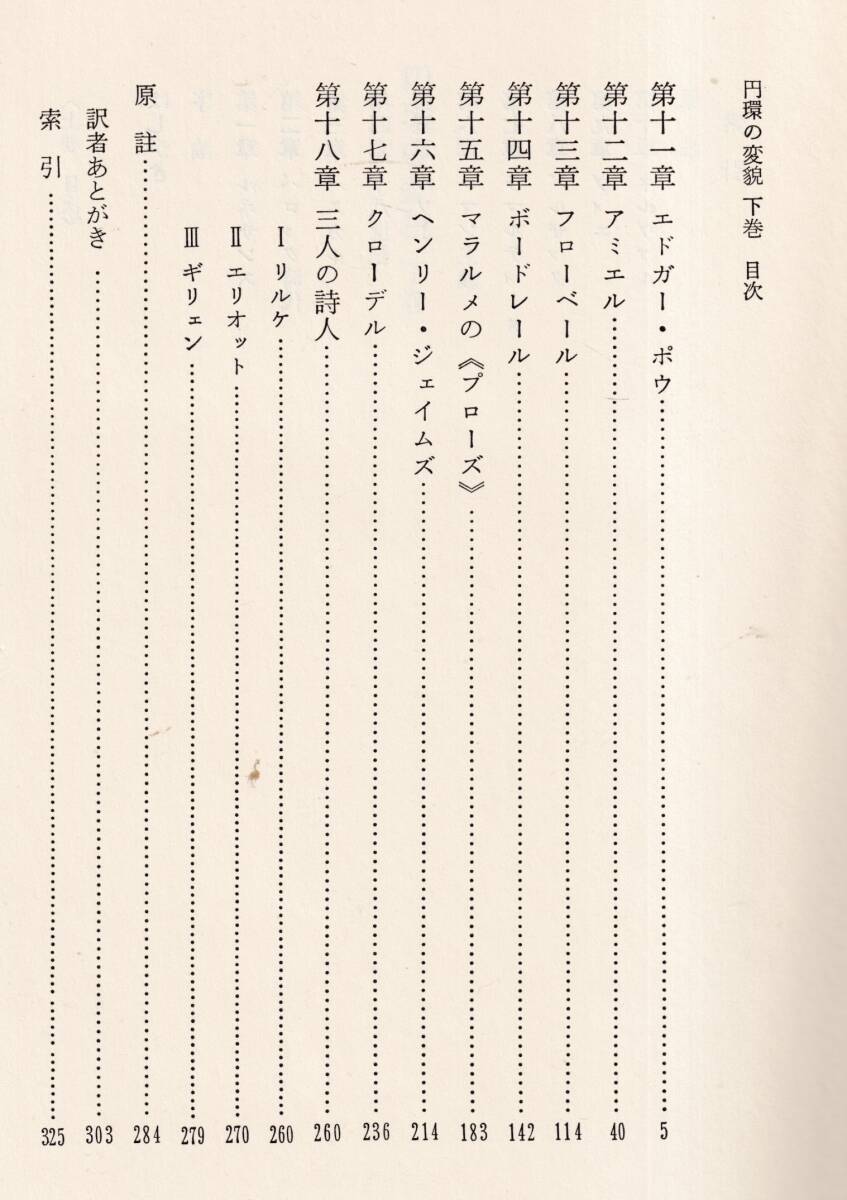 円環の変貌 下巻 目次
第十一章 エドガー・ポウ……………5
第十二章 アミエル……………40
第十三章 フローベール……………114
第十四章 ボードレール……………142
第十五章 マラルメの《プローズ》……………183
第十六章 ヘンリー・ジェイムズ……………214
第十七章 クローデル……………236
第十八章 三人の詩人……………260
Ⅰ リルケ……………260
Ⅱ エリオット……………270
Ⅲ ギリェン……………279
原註……………284
訳者あとがき……………303
索引……………325